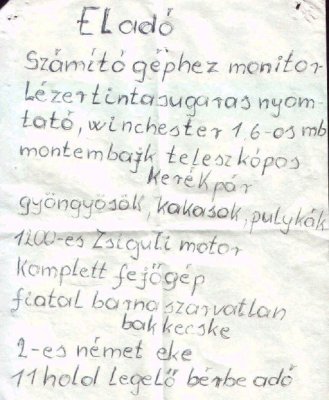 ELadó
Számító géphez monitor
Lézertintasugaras nyom-
tató, winchester 1.6-os mb
montembajk teleszkópos
kerékpár
gyöngyösök, kakasok, pulykák
1200-es Zsiguli motor
Komplett fejőgép
fiatal barna szarvatlan
bakkecske
2-es német eke
11 hold legelő bérbe adó